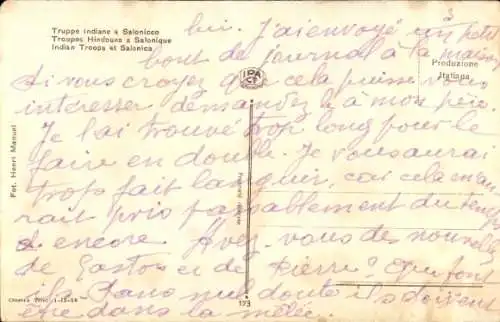 Truppe Indiane a Salonicco
Troupes Hindoues a Salonique
Indian Troops at Salonica
3
lui. J'ai envoyé un petit
bout de journal à la maison
Produzione
Italiana
si vous croyez que cela puisse vous
intéresser demandez le à mon père
Je l'ai trouvé trop long pour le
faire en double Je vous aurai
trop fait languir, car cela m'au
rait pris passablement du temps
et encore Avez-vous des nouvelles
de Gaston et de Pierre? Que font
ils sans nul doute ils doivent
être dans la mêlée.
Fot. Henri Manuel
173